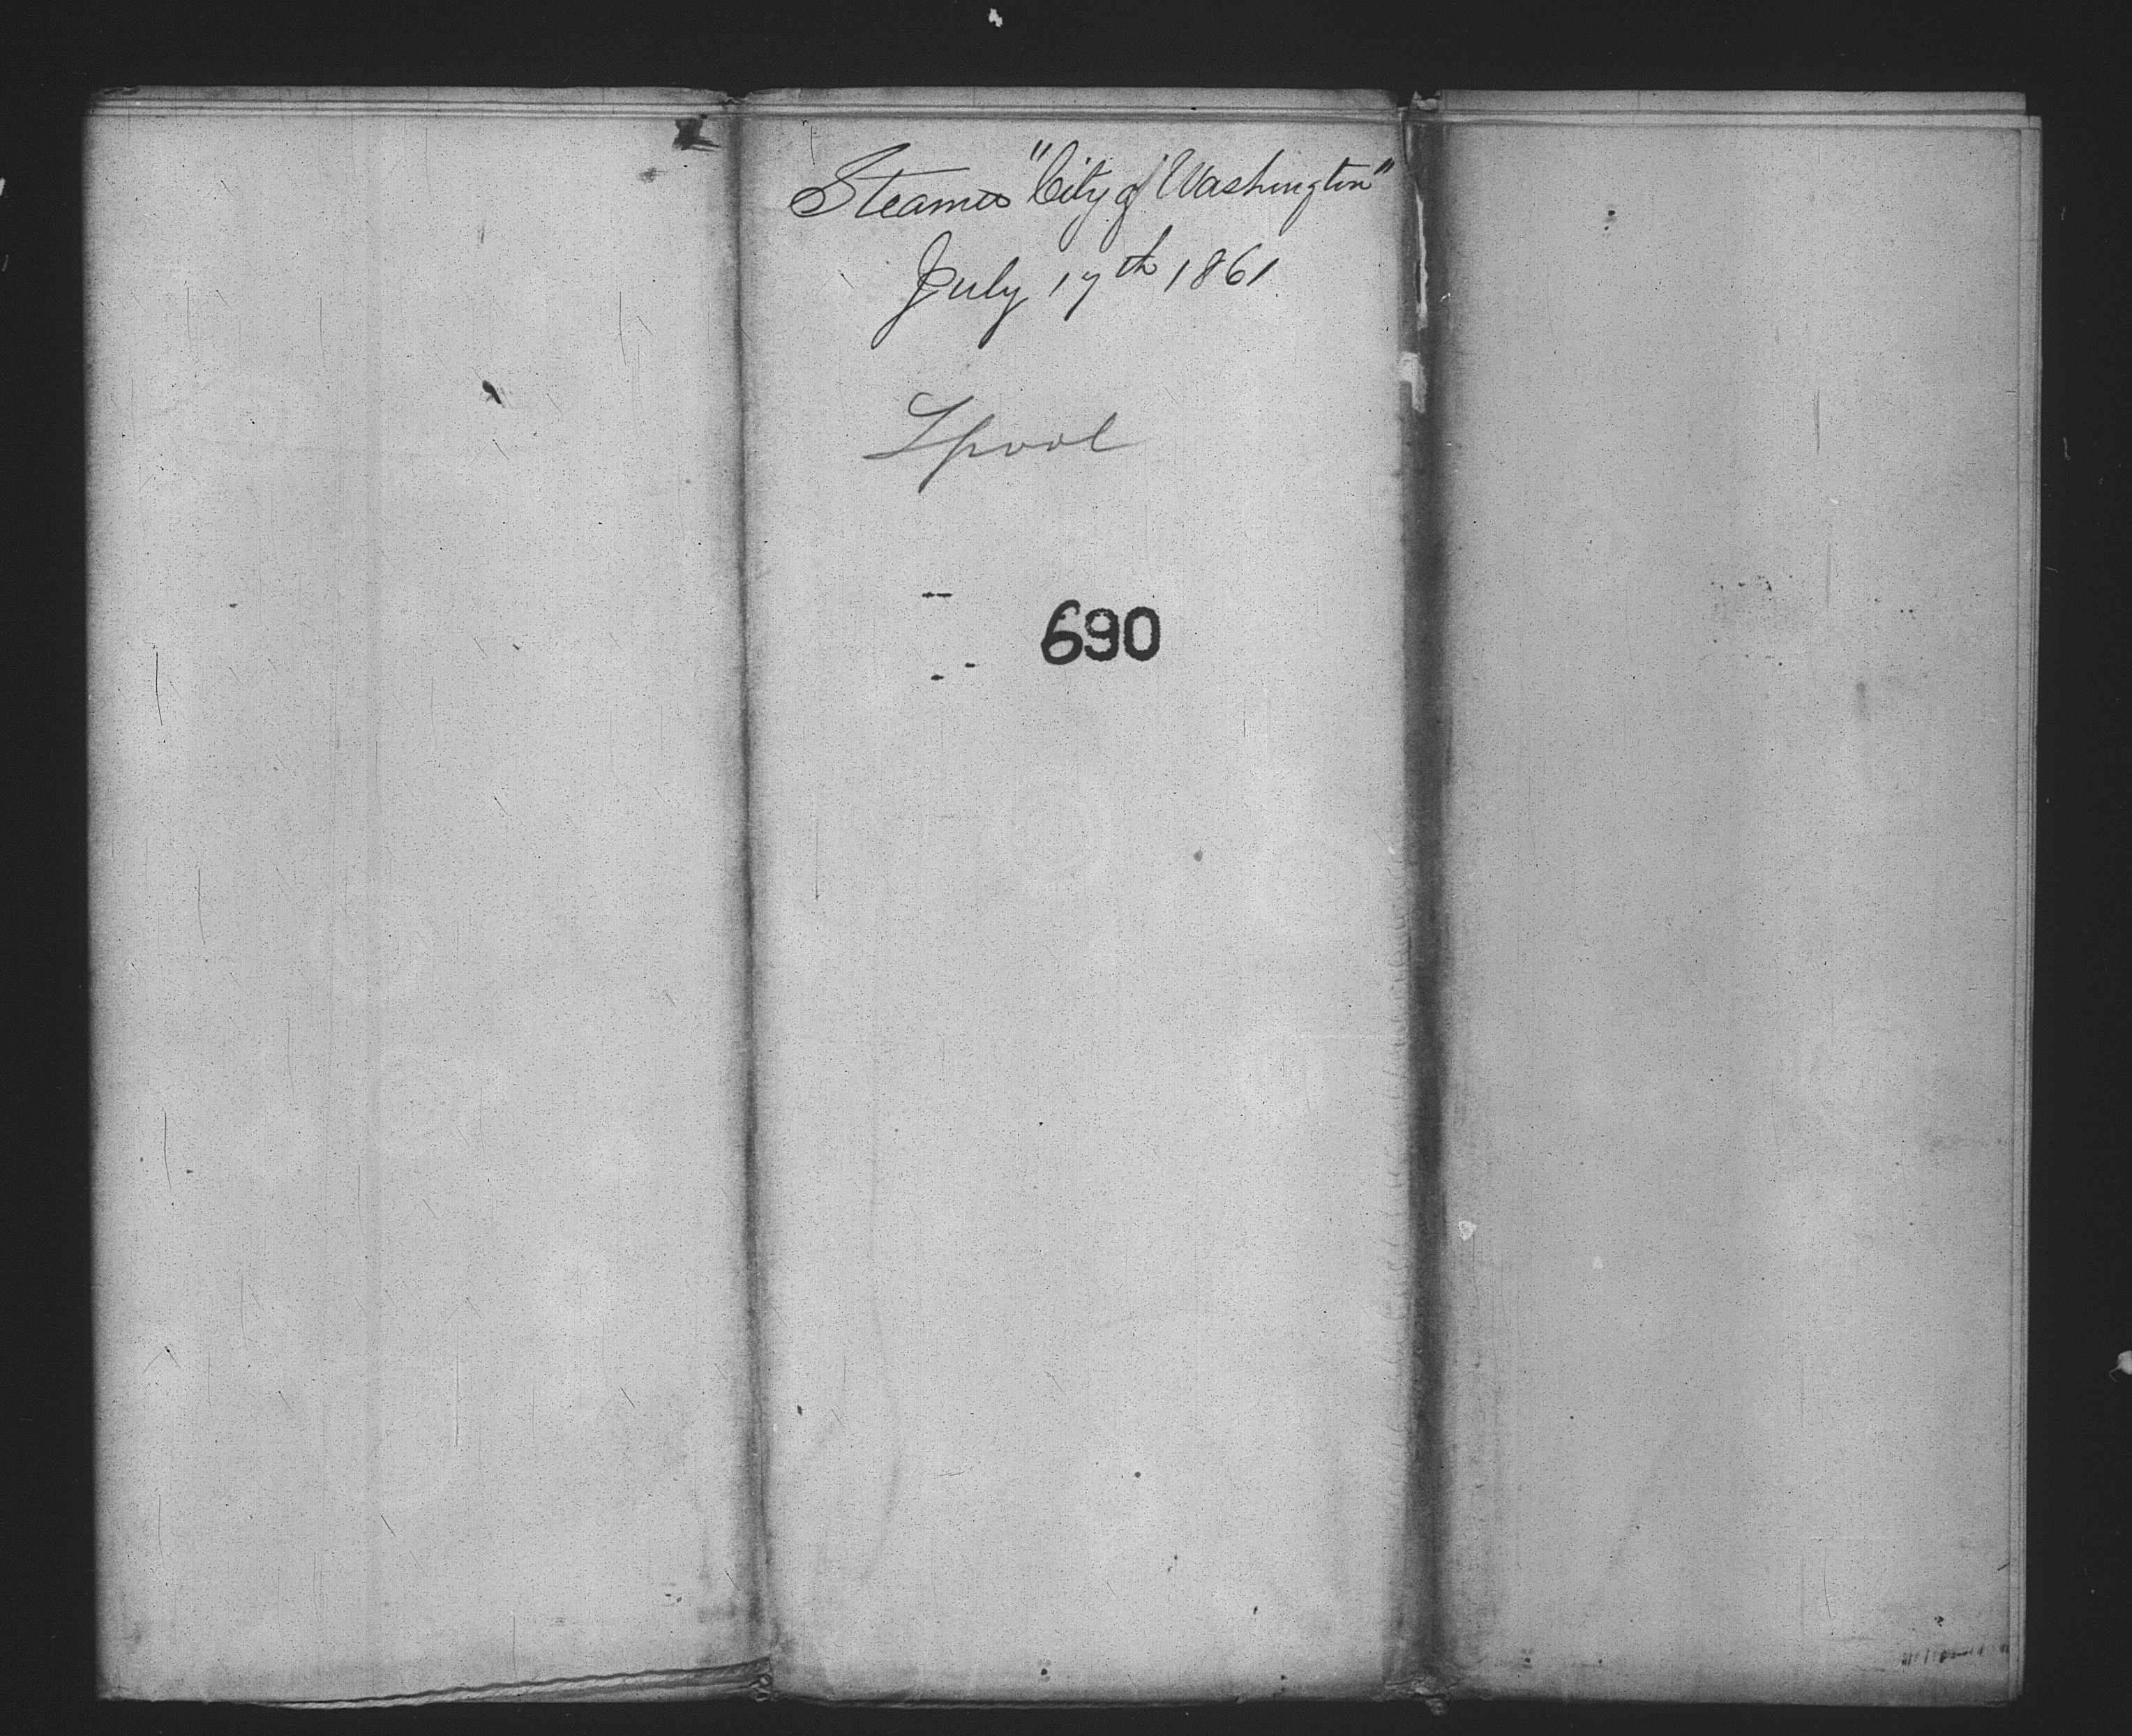 Steamer "City of Washington"
July 17th 1861
Lpool
690